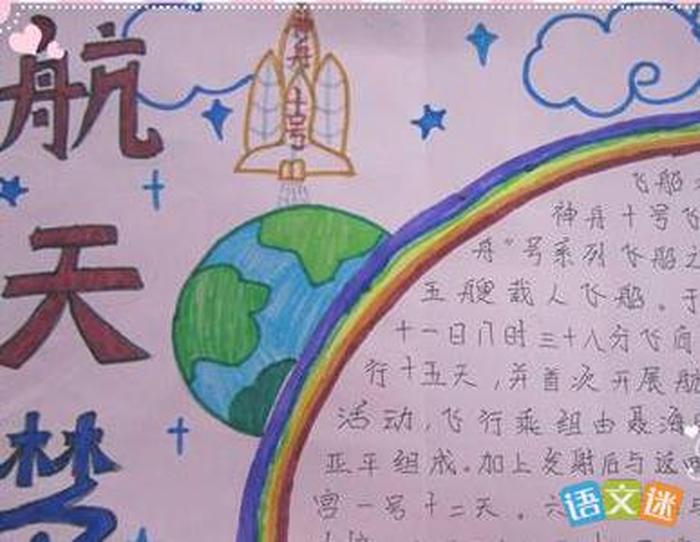 航
天
梦
神舟十号
飞船
神舟十号飞
舟"号系列飞船之
五艘载人飞船。
十一日八时三十八分飞向
行十五天,并首次开展航
活动,飞行乘组由聂海
亚平组成。加上发射后与返回
宫一号十二天。六
语文迷